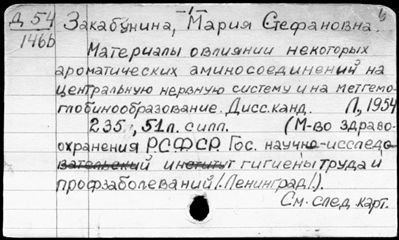 Д 54
1466
Закабунина, Мария Стефановна.
Материалы о влиянии некоторых
ароматических аминосоединений на
центральную нервную систему и на метгемо-
глобинообразование. Дисс. канд. Л, 1954
235, 51 л. с илл. (М-во здраво-
охранения РСФСР. Гос. научно-исследо-
вательский институт гигиены труда и
профзаболеваний /Ленинград/).
См. след. карт.